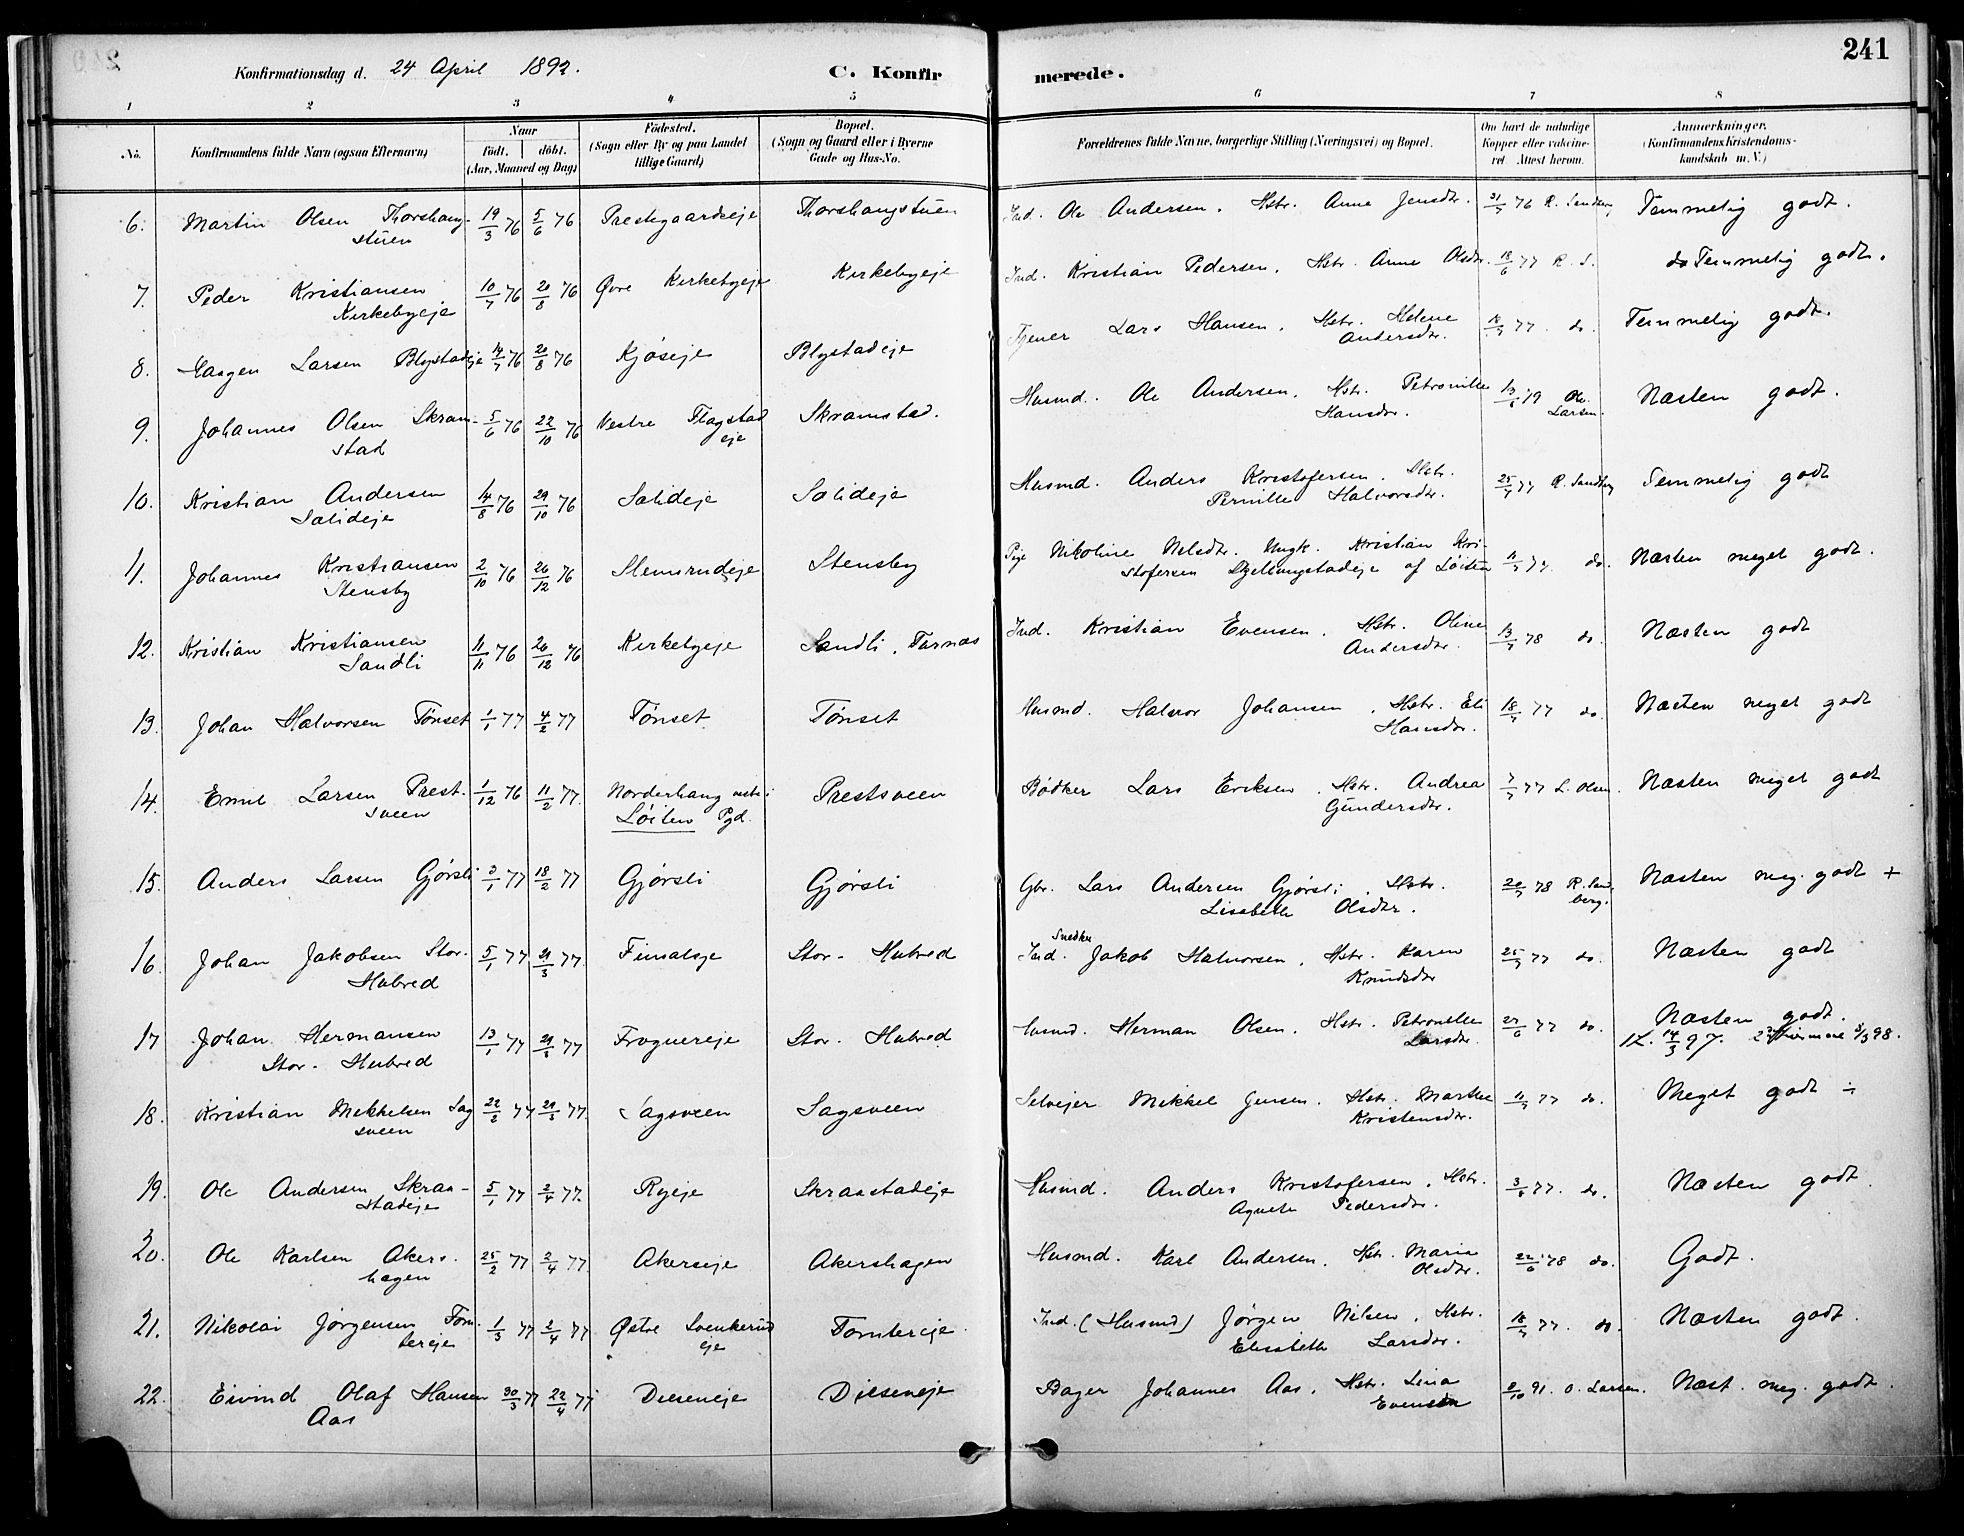 241
Konfirmationsdag d. 24 April 1892. C. Konfirmerede.
1 2 3 4 5 6 7 8
No. Konfirmandens fulde Navn (ogsaa Efternavn) Naar født. døbt. (Aar, Maaned og Dag) Fødested. (Sogn eller By og paa Landet tillige Gaard) Bopæl. (Sogn og Gaard eller i Byerne Gade og Hus-No. Forældrenes fulde Navne, borgerlige Stilling (Næringsvei) og Bopæl. Om havt de naturlige Kopper eller vakcineret. Attest herom. Anmerkninger. (Konfirmandens Kristendomskundskab m. V.)
6. Martin Olsen Thorshaug- 19/3 76 5/6 76 Prestegaardseje Thorshaugstuen Ind. Ole Andersen. Hstr. Anne Jensdtr. 76 R. Sandberg Temmelig godt.
stuen
7. Peder Kristiansen 10/7 76 20/8 76 Øvre Kirkebyeje Kirkebyeje Ind. Kristian Pedersen. Hstr. Anne Olsdtr. 18/6 77 R. S. do Temmelig godt.
Kirkebyeje
8. Haagen Larsen Blystadeje 14/7 76 20/8 76 Kjøseje Blystadeje Tjener Lars Hansen. Hstr. Helene 77 do. Temmelig godt.
Andersdtr.
9. Johannes Olsen Skram- 5/6 76 22/10 76 Vestre Flagstad Skramstad. Husmd. Ole Andersen. Hstr. Petronille 79 Ole Næsten godt.
stad eje Hansdtr. Larsen.
10. Kristian Andersen 14/8 76 29/10 76 Salideje Salideje Husmd. Anders Kristofersen. Hstr. 25/7 77 R. Sandberg Temmelig godt
Salideje Pernille Halvorsdtr.
11. Johannes Kristiansen 2/10 76 26/12 76 Slemsrudeje Stensby Pige Nikoline Nilsdtr. Ungk. Kristian Kri- 77 do. Næsten meget godt.
Stensby stofersen af Løiten
12. Kristian Kristiansen 11/11 76 26/12 76 Kirkebyeje Sandli, Furnæs Ind. Kristian Evensen. Hstr. Oline 13/7 78 do. Næsten godt
Sandli Andersdtr.
13. Johan Halvorsen Tønset 1/1 77 4/2 77 Tønset Tønset Husmd. Halvor Johansen. Hstr. Eli 18/7 77 do. Næsten meget godt
Hansdtr.
14. Emil Larsen Prest- 1/12 76 11/2 77. Norderhaug vestre i Prestsveen Bødker Lars Eriksen. Hstr. Andrea 7/7 77 L. Olsen. Næsten meget godt
sveen Løiten Pgd. Gundersdtr.
15. Anders Larsen Gjørsli 3/1 77 18/2 77 Gjørsli Gjørsli Gbr. Lars Andersen Gjørsli. Hstr. 20/7 78 R. Sand Næsten meg. godt +
Lisabeth Olsdtr. berg.
Snedker
16. Johan Jakobsen Stor- 5/1 77 77. Stor- Hubred Ind. Jakob Halvorsen. Hstr. Karen 25/7 77 do. Næsten godt
Hubred Knudsdtr
17 Johan Hermansen 13/1 77 77 Frognereje Stor- Hubred Husmd. Herman Olsen. Hstr. Petronelle 27/6 77 do. Næsten godt.
Stor- Hubred Larsdtr. 14/3 97. 98.
18. Kristian Mikkelsen Sag 22/2 77 77. Sagsveen Sagsveen Selvejer Mikkel Jensen. Hstr. Marthe 11/7 77 do. Meget godt ÷
sveen Kristensdtr.
19. Ole Andersen Skraa- 5/1 77 2/4 77. Ryeje Skraastadeje Husmd. Anders Kristofersen. Hstr. 77. do. Næsten godt.
stadeje Agnete Pedersdtr.
20. Ole Karlsen Akers- 25/2 77 2/4 77 Akerseje Akershagen Husmd. Karl Andersen. Hstr. Maria 22/6 78 do. Godt.
hagen Olsdtr.
21. Nikolai Jørgensen Torn- 1/3 77 2/4 77 Østre Svenkerud Torntereje Ind. (Husmd) Jørgen Nilsen. Hstr. 18/7 77. do. Næsten godt.
tereje eje Elisabeth Larsdtr.
22. Eivind Olaf Hansen 30/3 77 22/4 77 Dieseneje Dieseneje Bager Johannes Aas. Hstr. Lina 91. O. Larsen. Næst. meg. godt.
Aas Evensen